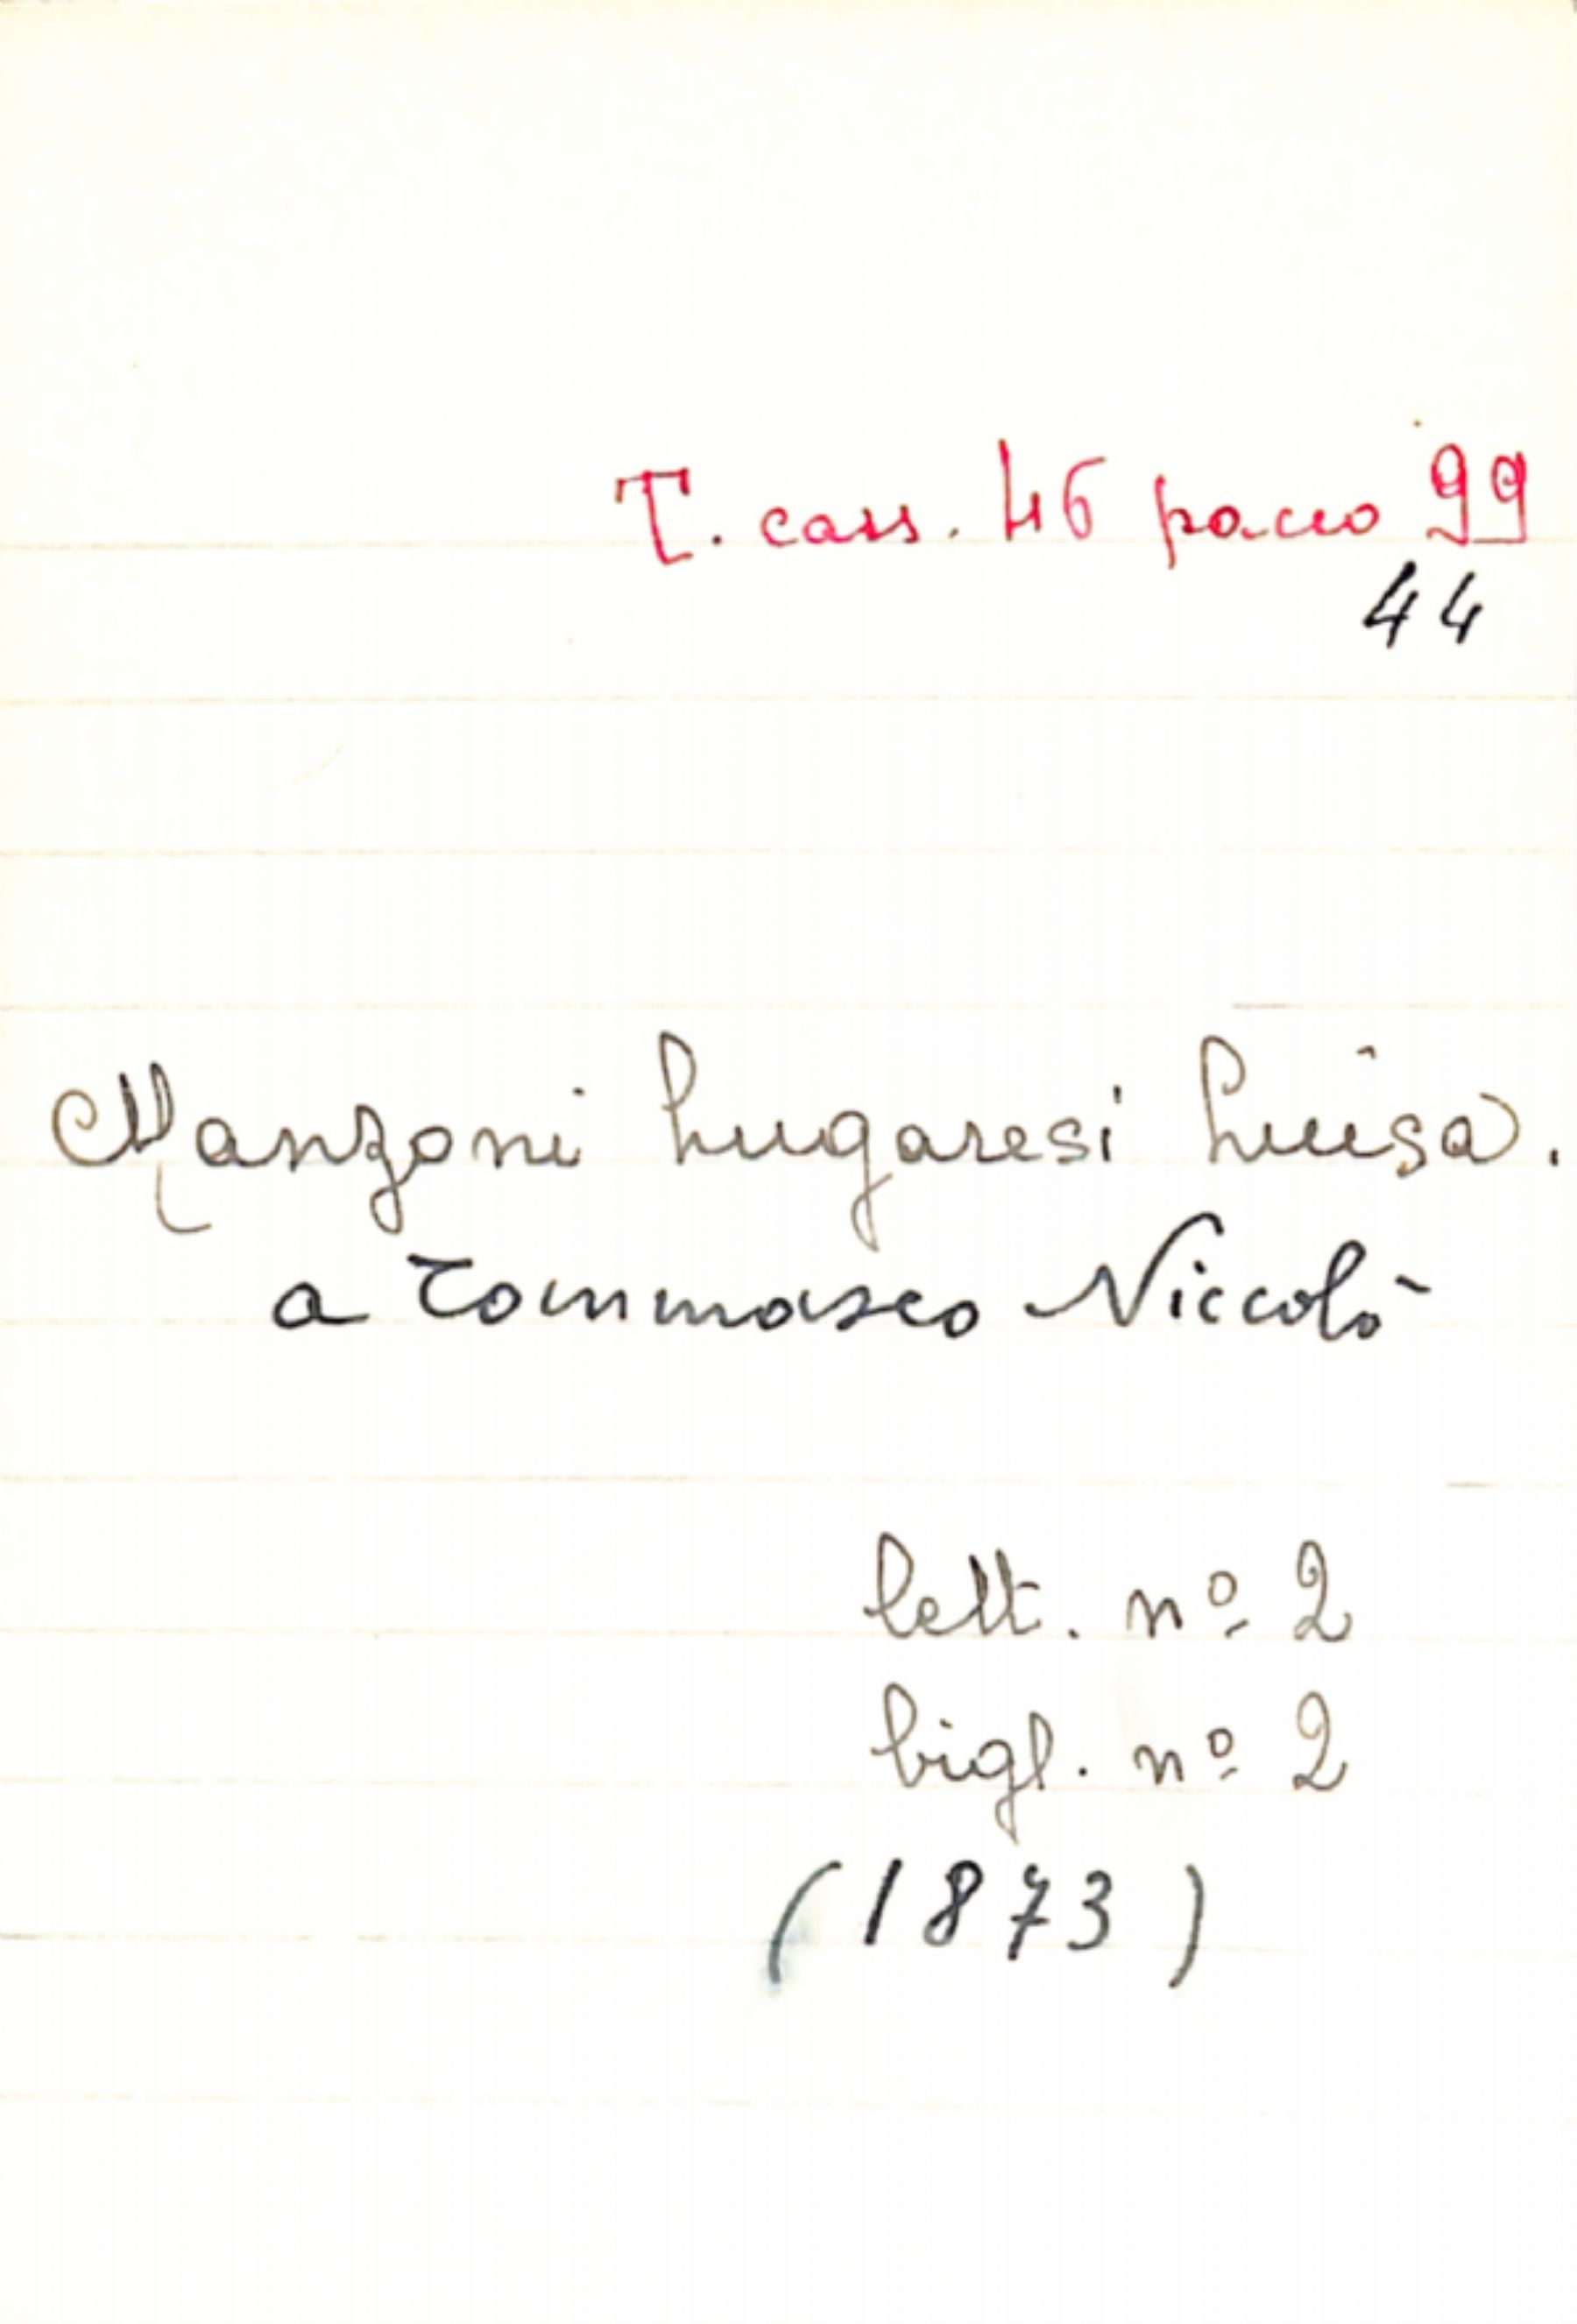 T. cass. 46 pacco 99
44
Manzoni Lugaresi Luisa.
a Tommaseo Niccolò
lett. nº 2
bigl. nº 2
(1873)